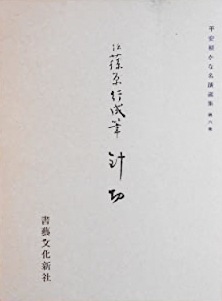 平安朝かな名蹟選集 第六巻
伝藤原行成筆 針切
書藝文化新社